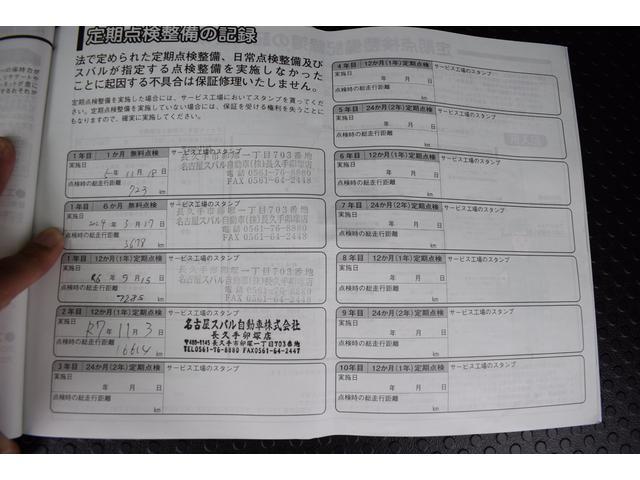 定期点検整備の記録
法で定められた定期点検整備、日常点検整備及び
スバルが指定する点検整備を実施しなかった
ことに起因する不具合は保証修理いたしません。
定期点検整備を実施した場合には、サービス工場においてスタンプを貰ってくだ
さい。定期点検整備を実施していない場合には、保証を受ける権利を失うことに
もなりますので、確実に実施してください。
1年目 1か月 無料点検 サービス工場のスタンプ
実施日
5年 11月 18日
点検時の総走行距離
723 km
長久手市卯塚一丁目703番地
名古屋スバル自動車(株)長久手卯塚店
電話 0561-76-8880
FAX 0561-64-2448
1年目 6か月 無料点検 サービス工場のスタンプ
実施日
2024年 3月 17日
点検時の総走行距離
3678 km
長久手市卯塚一丁目703番地
名古屋スバル自動車(株)長久手卯塚店
電話 0561-76-8880
FAX 0561-64-2448
1年目 12か月(1年)定期点検 サービス工場のスタンプ
実施日
R6年 9月 15日
点検時の総走行距離
7285 km
長久手市卯塚一丁目703番地
名古屋スバル自動車(株)長久手卯塚店
電話 0561-76-8880
FAX 0561-64-2448
2年目 12か月(1年)定期点検 サービス工場のスタンプ
実施日
R7年 11月 3日
点検時の総走行距離
16614 km
名古屋スバル自動車株式会社
長久手卯塚店
〒480-1145 長久手市卯塚一丁目703番地
TEL0561-76-8880 FAX0561-64-2447
3年目 24か月(2年)定期点検 サービス工場のスタンプ
実施日
年 月 日
点検時の総走行距離
km
4年目 12か月(1年)定期点検 サービス工場のスタンプ
実施日
年 月 日
点検時の総走行距離
km
5年目 24か月(2年)定期点検 サービス工場のスタンプ
実施日
年 月 日
点検時の総走行距離
km
6年目 12か月(1年)定期点検 サービス工場のスタンプ
実施日
年 月 日
点検時の総走行距離
km
7年目 24か月(2年)定期点検 サービス工場のスタンプ
実施日
年 月 日
点検時の総走行距離
km
8年目 12か月(1年)定期点検 サービス工場のスタンプ
実施日
年 月 日
点検時の総走行距離
km
9年目 24か月(2年)定期点検 サービス工場のスタンプ
実施日
年 月 日
点検時の総走行距離
km
10年目 12か月(1年)定期点検 サービス工場のスタンプ
実施日
年 月 日
点検時の総走行距離
km